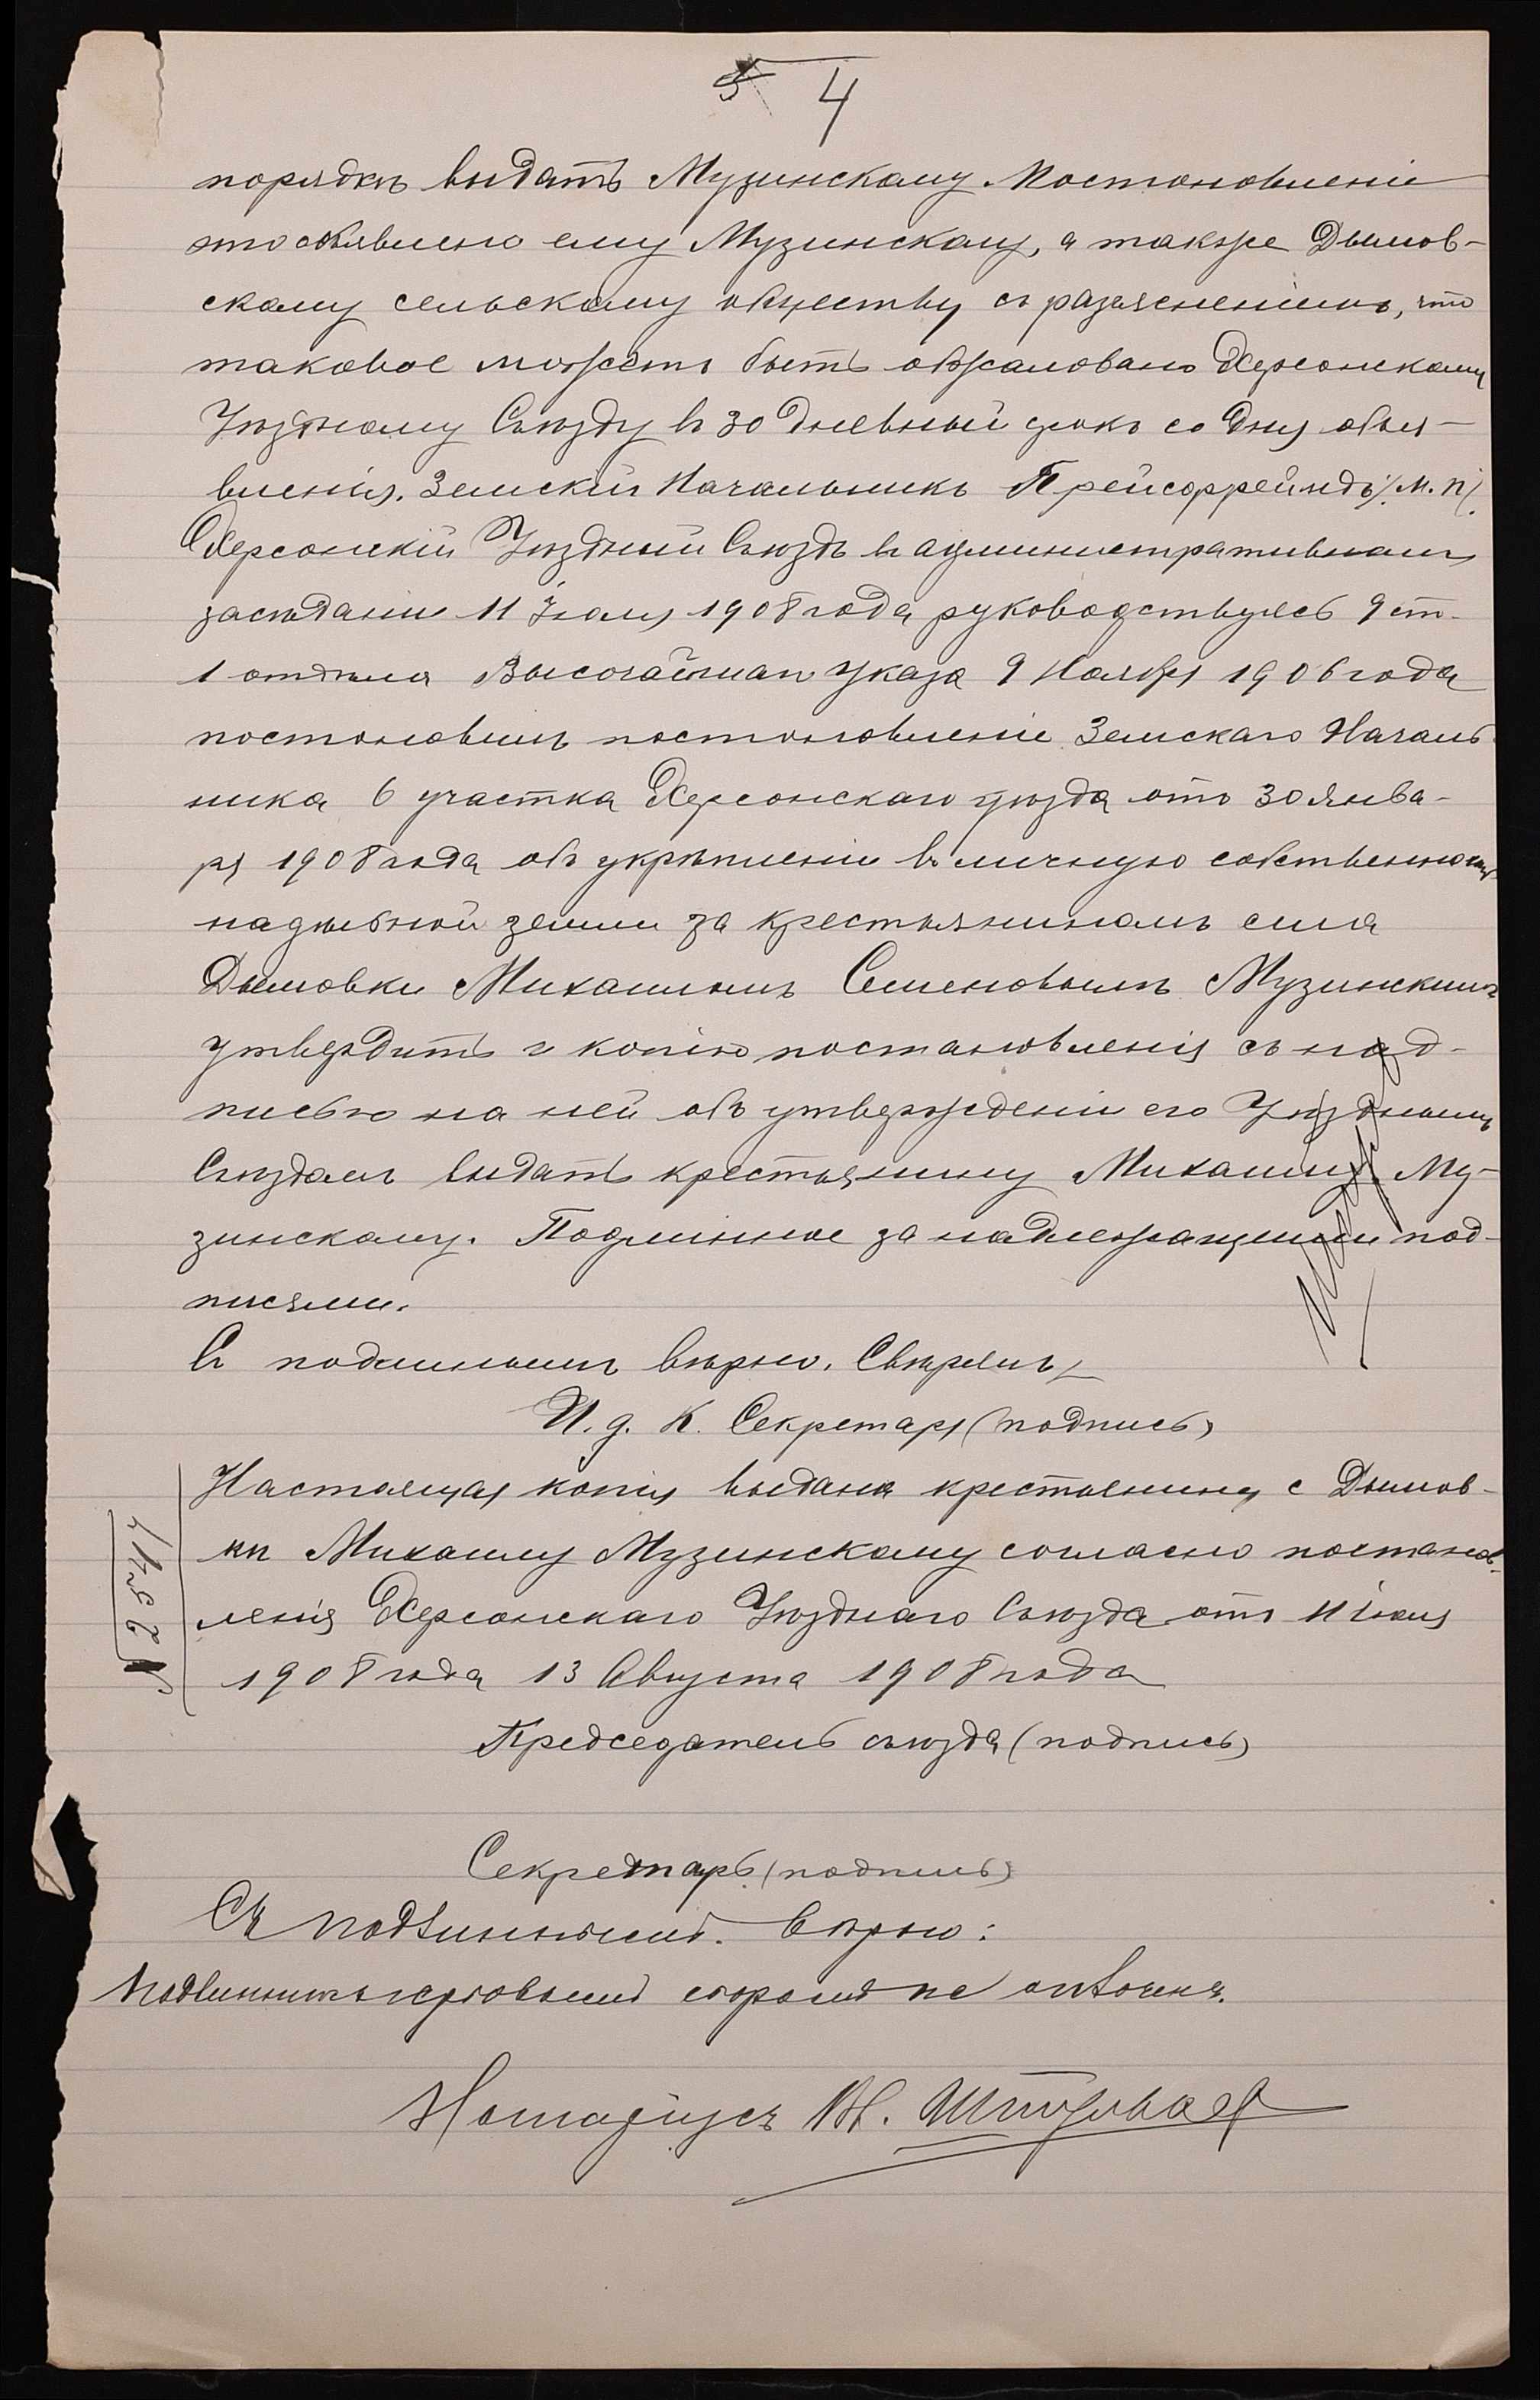 4
порядкѣ выдать Музинскому. Постановленіе
это объявлено ему Музинскому, а также Дымов-
скому сельскому обществу съ разъясненіемъ, что
таковое можетъ быть обжаловано Херсонскому
Уѣздному Съѣзду въ 30 дневный срокъ со дня объя-
вленія. Земскій Начальникъ Прейсфрейндъ /м.п./.
Херсонскій Уѣздный Съѣздъ въ административномъ
засѣданіи 11 Іюля 1908 года, руководствуясь 9 ст.
1 отдѣла Высочайшаго Указа 9 Ноября 1906 года
постановилъ постановленіе Земскаго Началь-
ника 6 участка Херсонскаго уѣзда отъ 30 Янва-
ря 1908 года объ укрѣпленіи въ личную собственность
надѣльной земли за крестьяниномъ села
Дымовки Михаиломъ Семеновымъ Музинскимъ
утвердить и копію постановленія съ над-
писью на ней объ утвержденіи его Уѣзднымъ
Съѣздомъ выдать крестьянину Михаилу Му-
зинскому. Подлинное за надлежащими под-
писями.
Съ подлиннымъ вѣрно. Свѣрялъ
И. д. К. Секретаря (подпись)
Настоящая копія выдана крестьянину с Дымов-
ки Михаилу Музинскому согласно постанов-
ленія Херсонскаго Уѣзднаго Съѣзда отъ 11 іюля
1908 года 13 Августа 1908 года
Предсѣдатель съѣзда (подпись)
Секретарь (подпись)
Съ подлиннымъ вѣрно:
гербовымъ сборомъ не оплоченъ.
Нотаріусъ